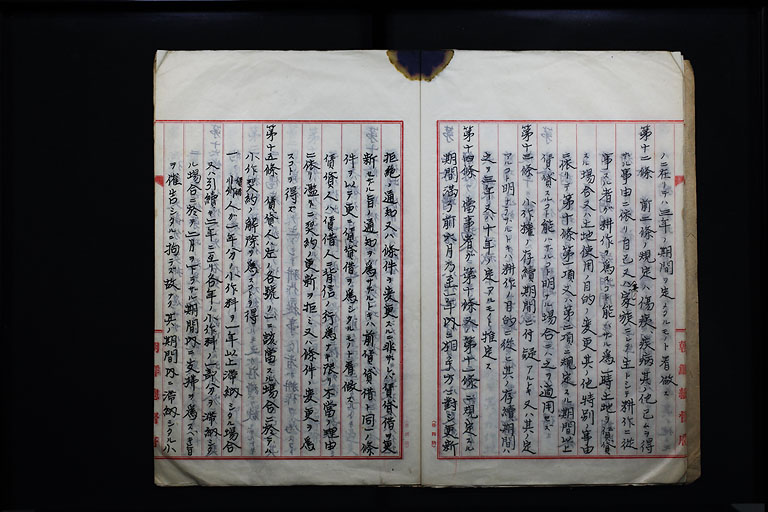 ノ在リテハ三年ノ期間ヲ定メタルモノト看做ス
第十二條 前二條ノ規定ハ傷痍疾病其ノ他已ムヲ得
ザル事由ニ依リ自己又ハ家族ヲ主トシテ耕作ニ從
事スル者ガ耕作ヲ爲スコト能ハザル爲一時土地ヲ賃貸
スル場合又ハ土地使用目的ノ變更其ノ他特別ノ事由
ニ依リテ第十條第一項又ハ第二項ニ規定スル期間以上
賃貸スルコト能ハザルコト明ナル場合ニハ之ヲ適用セズ
第十三條 小作權ノ存續期間ニ付疑アルトキ又ハ其ノ定
アルコト明ナラザルトキハ耕作ノ目的ニ從ヒ其ノ存續期間ハ
之ヲ三年又ハ十年ト定メタルモノト推定ス
第十四條 當事者ガ第十條又ハ第十一條ニ規定スル
期間滿了前六月乃至一年內ニ相手方ニ對シ更新
拒絕ノ通知又ハ條件ヲ變更スルニ非ザレバ賃貸借ヲ更
新セザル旨ノ通知ヲ爲サザルトキハ前賃貸借ト同一ノ條
件ヲ以テ更ニ賃貸借ヲ爲シタルモノト看做ス
賃貸人ハ賃借人ニ背信ノ行爲ナキ限リ不當ノ理由
ニ依リ濫ニ契約ノ更新ヲ拒ミ又ハ條件ノ變更ヲ爲
スコトヲ得ズ
第十五條 賃貸人ハ左ノ各號ノ一ニ該當スル場合ニ於テハ
小作契約ノ解除ヲ爲スコトヲ得
一 賃借人ガ一年分ノ小作料ヲ一年以上滯納シタル場合
又ハ引續キ二年ニ亙リ各年ノ小作料ノ一部分ヲ滯納シ
タル場合ニ於テ二月ヲ下ラザル期間內ニ支拂ヲ爲スベキ旨
ヲ催告シタルニ拘ラズ故ナク其ノ期間內ニ滯納シタル小
朝鮮總督府